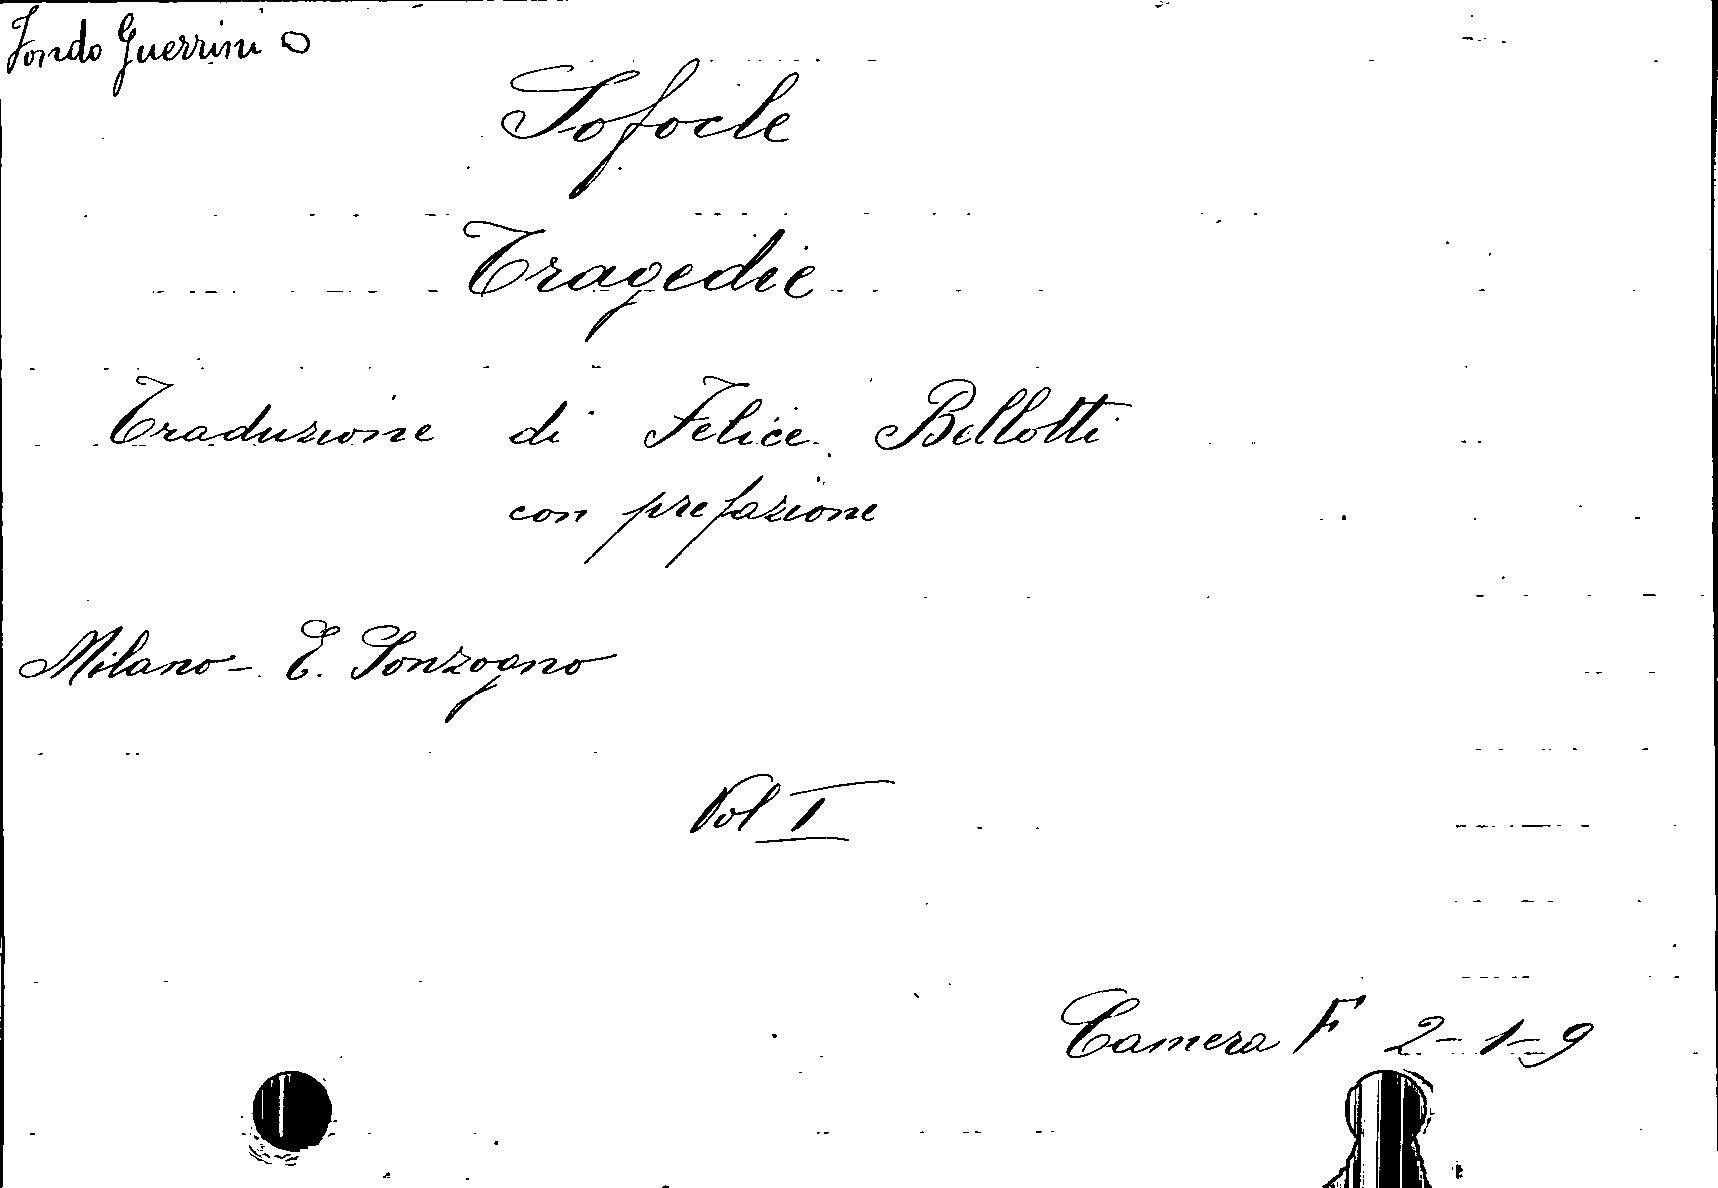 Fondo Guerrini O
Sofocle
Tragedie
Traduzione di Felice Bellotti
con prefazione
Milano - E. Sonzogno
Vol I
Camera F 2-1-9